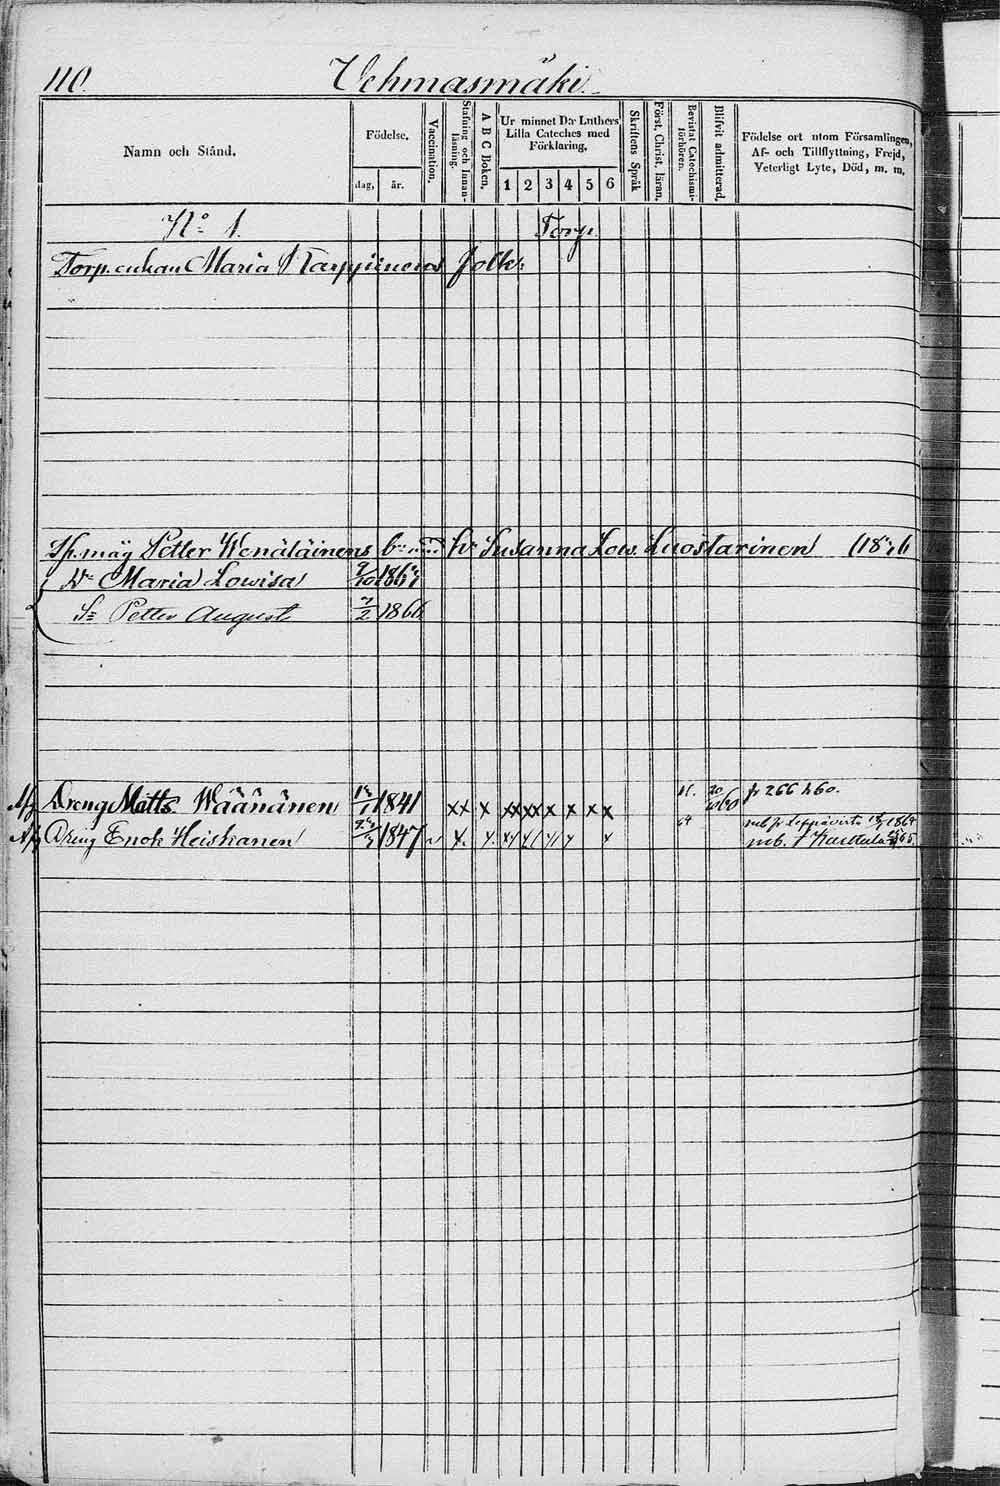 110. Vehmasmäki.
Namn och Stånd.
Födelse.
dag, år.
Vaccination.
Stafning och Innan-läsning.
A B C Boken.
Ur minnet D:r Luthers Lilla Cateches med Förklaring.
1 2 3 4 5 6
Skriftens Språk
Först. Christ. läran.
Bevistat Catechismi-förhören.
Blifvit admitterad.
Födelse ort utom Församlingen, Af- och Tillflyttning, Frejd, Veterligt Lyte, Död, m. m.
No 1. Torp.
Torp. enkan Maria folk:
Petter Wenäläinens Susanna Lov. Luostarinen
Dr Maria Lowisa 9/10
Sn Petter August 7/2 1866
Afg Dreng Matts Wäänänen 1841 xx x xx xx x x x x 20/10 60 fr 266 h 60.
Afg Dräng Enok Heiskanen 1847 v 64 mb fr Leppävirta 1864
mb. t Karttula 65